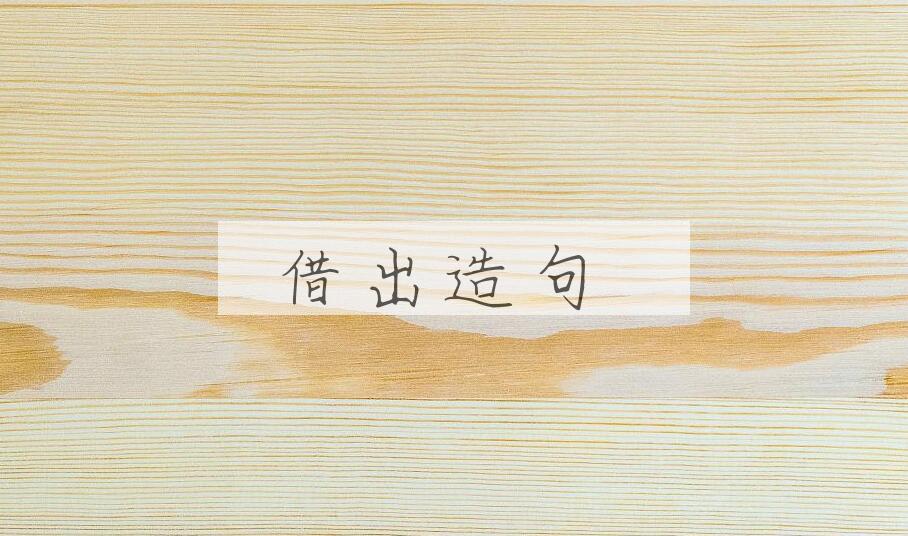 借出造句